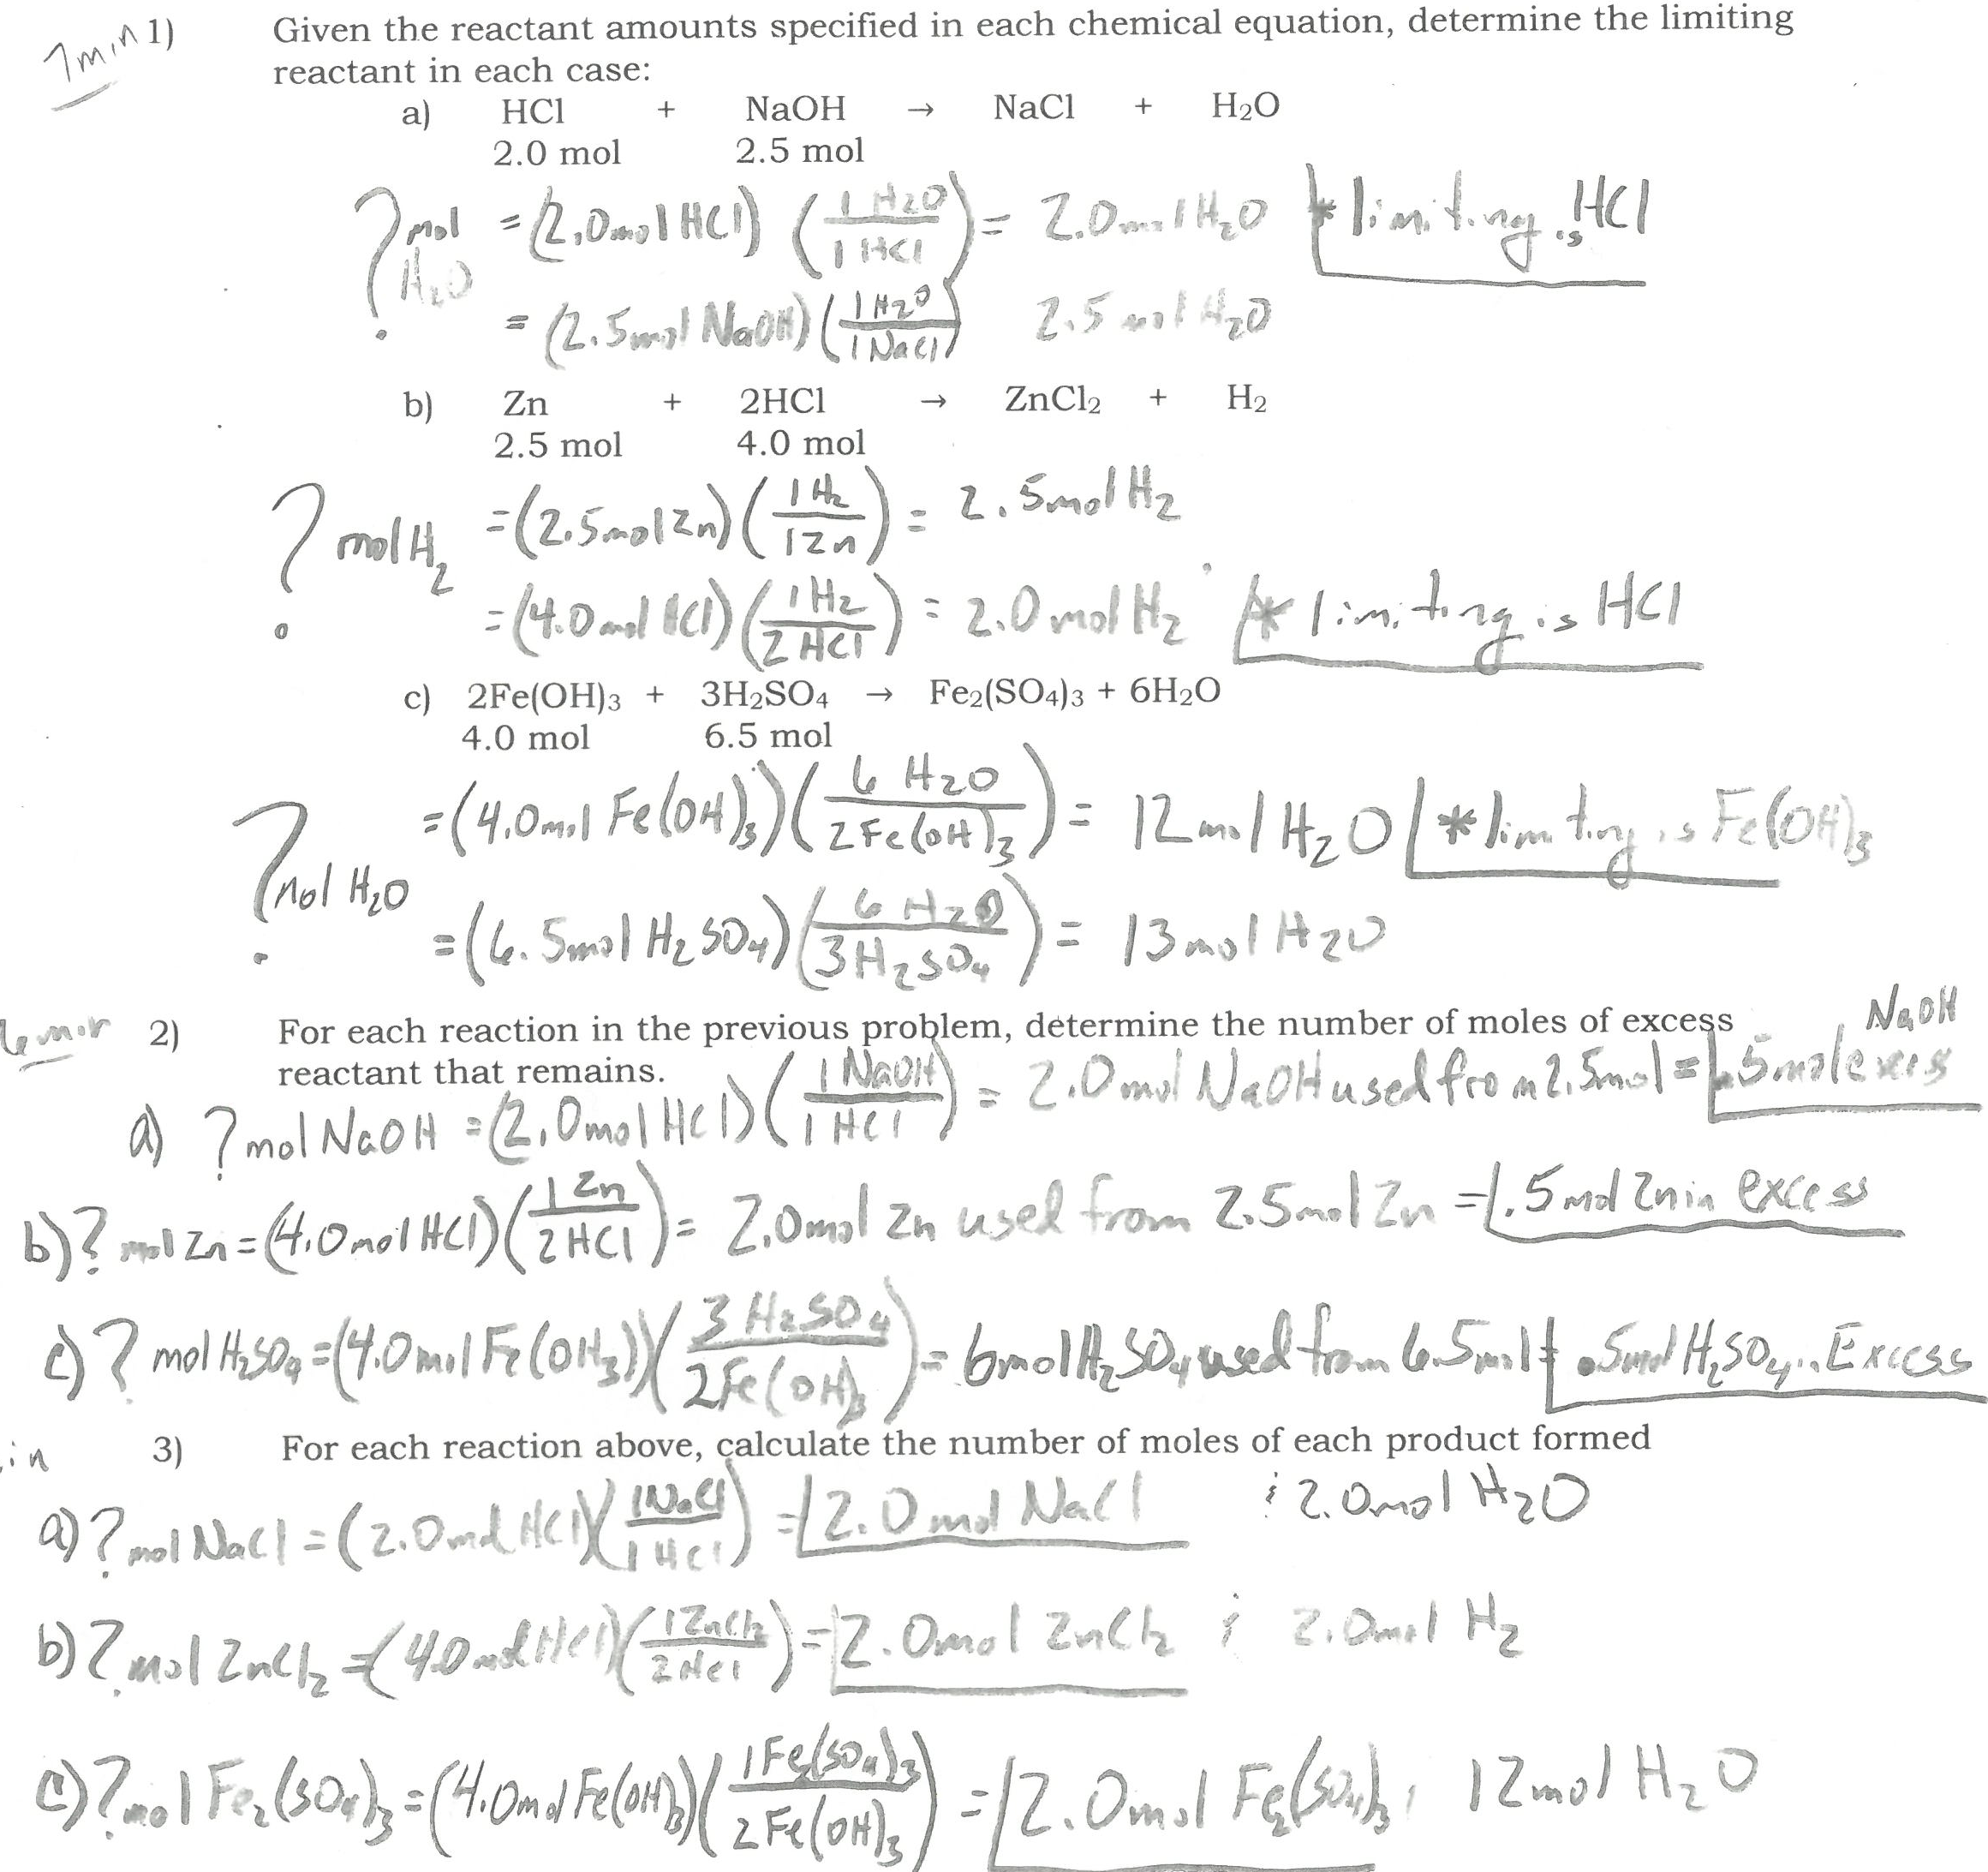 7min 1) Given the reactant amounts specified in each chemical equation, determine the limiting
reactant in each case:
a) HCl + NaOH → NaCl + H₂O
2.0 mol 2.5 mol
? mol H₂O = (2.0 mol HCl) (1 H₂O / 1 HCl) = 2.0 mol H₂O * limiting is HCl
= (2.5 mol NaOH) (1 H₂O / 1 NaCl) 2.5 mol H₂O
b) Zn + 2HCl → ZnCl₂ + H₂
2.5 mol 4.0 mol
? mol H₂ = (2.5 mol Zn) (1 H₂ / 1 Zn) = 2.5 mol H₂
= (4.0 mol HCl) (1 H₂ / 2 HCl) = 2.0 mol H₂ * limiting is HCl
c) 2Fe(OH)₃ + 3H₂SO₄ → Fe₂(SO₄)₃ + 6H₂O
4.0 mol 6.5 mol
? mol H₂O = (4.0 mol Fe(OH)₃) (6 H₂O / 2 Fe(OH)₃) = 12 mol H₂O * limiting is Fe(OH)₃
= (6.5 mol H₂SO₄) (6 H₂O / 3 H₂SO₄) = 13 mol H₂O
6min 2) For each reaction in the previous problem, determine the number of moles of excess
reactant that remains.
a) ? mol NaOH = (2.0 mol HCl) (1 NaOH / 1 HCl) = 2.0 mol NaOH used from 2.5 mol = .5 mol exess NaOH
b) ? mol Zn = (4.0 mol HCl) (1 Zn / 2 HCl) = 2.0 mol Zn used from 2.5 mol Zn = .5 mol Zn in excess
c) ? mol H₂SO₄ = (4.0 mol Fe(OH₃)) (3 H₂SO₄ / 2 Fe(OH)₃) = 6 mol H₂SO₄ used from 6.5 mol = .5 mol H₂SO₄ in Excess
in 3) For each reaction above, calculate the number of moles of each product formed
a) ? mol NaCl = (2.0 mol HCl) (1 NaCl / 1 HCl) = 2.0 mol NaCl ; 2.0 mol H₂O
b) ? mol ZnCl₂ = (4.0 mol HCl) (1 ZnCl₂ / 2 HCl) = 2.0 mol ZnCl₂ ; 2.0 mol H₂
c) ? mol Fe₂(SO₄)₃ = (4.0 mol Fe(OH)₃) (1 Fe₂(SO₄)₃ / 2 Fe(OH)₃) = 2.0 mol Fe₂(SO₄)₃ , 12 mol H₂O